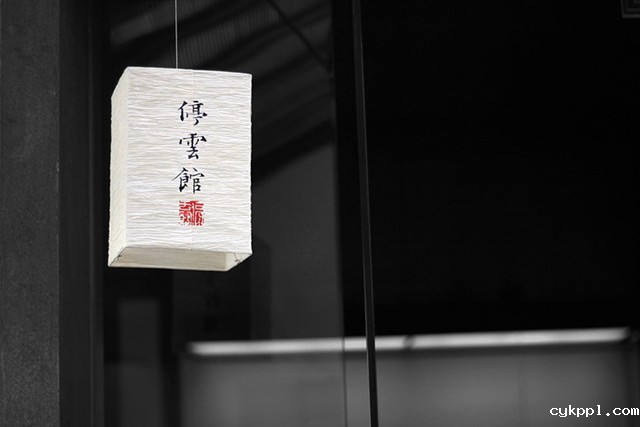 停雲館
cykppl.com